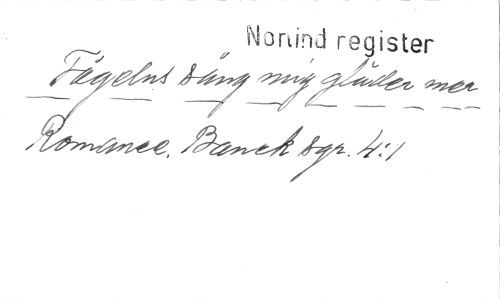 Nonind register
Fågelns sång mig gläder mer
Romance. Banck sgr. 4:1